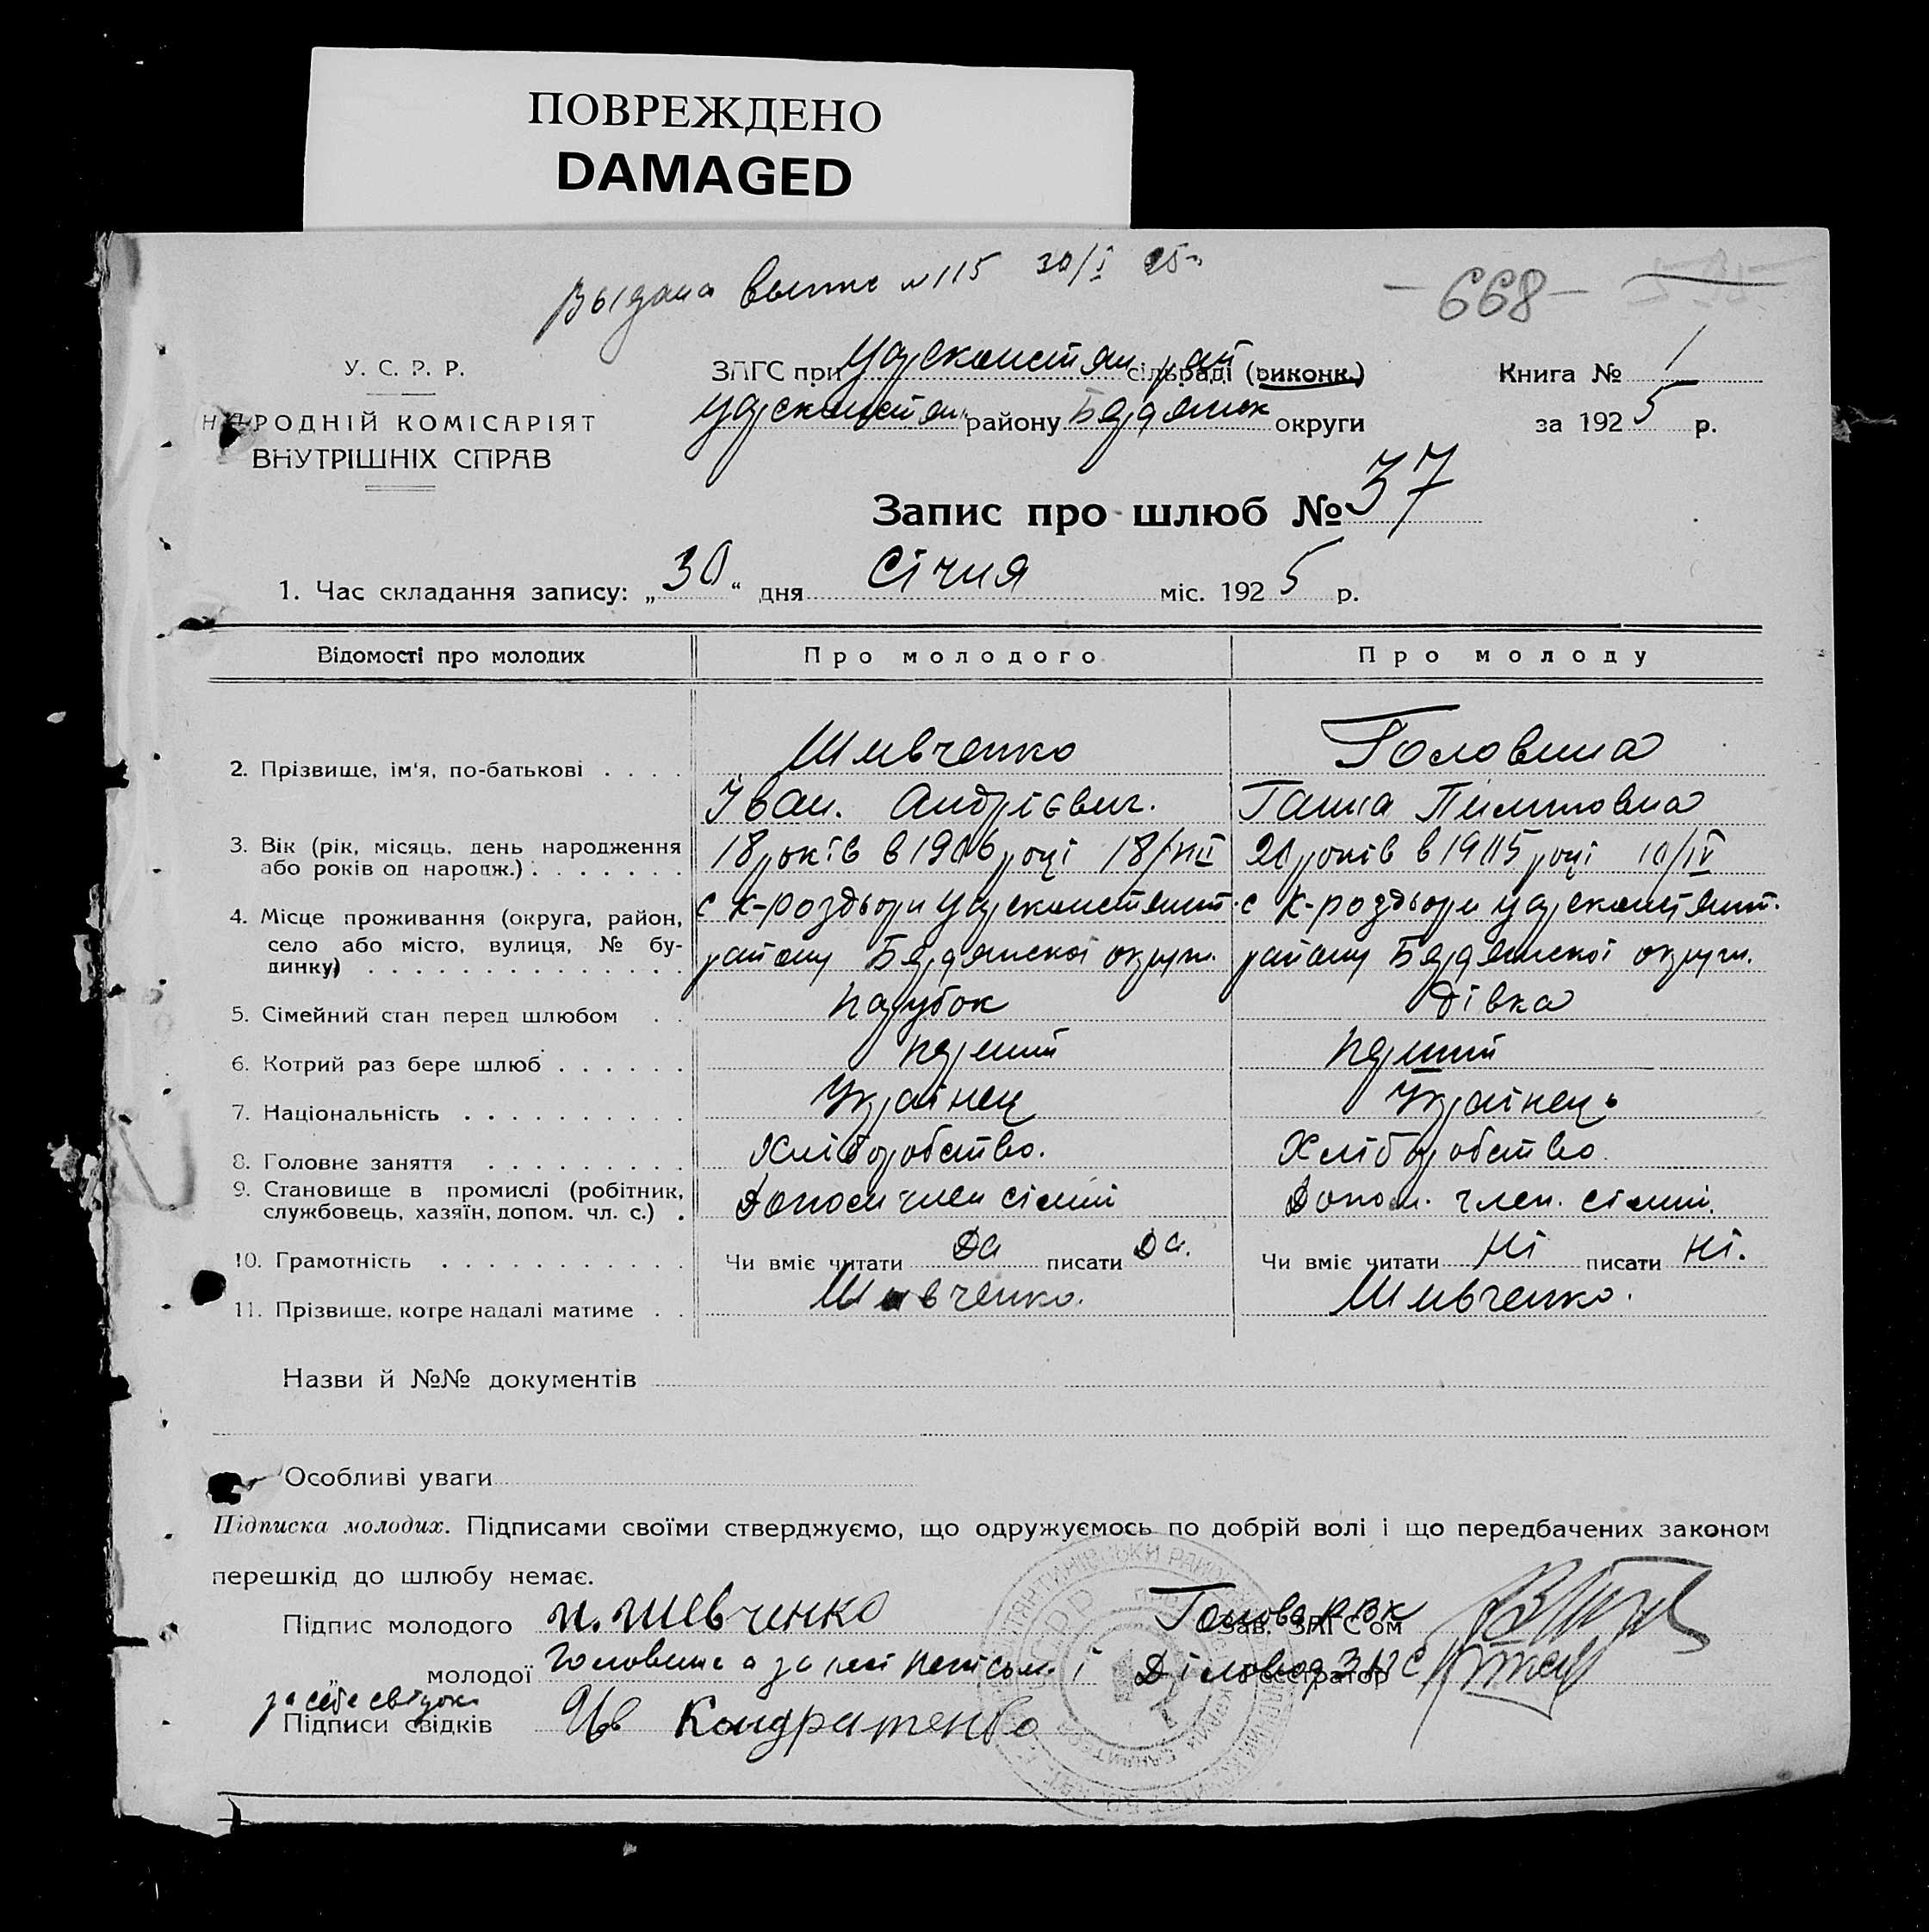 ПОВРЕЖДЕНО
DAMAGED
Выдана выпис №115 30/I 25 г.
-668-
У. С. Р. Р.
НАРОДНІЙ КОМІСАРІЯТ
ВНУТРІШНІХ СПРАВ
ЗАГС при Царсконстян рай сільраді (виконк.)
Царсконстян. району Бердянськ округи
Книга № 1
за 1925 р.
Запис про шлюб № 37
1. Час складання запису: „30“ дня Січня міс. 1925 р.
Відомості про молодих Про молодого Про молоду
2. Прізвище, ім'я, по-батькові . . . . Шивченко Головина
Іван. Андрієвич. Ганна
3. Вік (рік, місяць, день народження 18 років в 1906 році 20 років в 1905 році 10/IV
або років од народж.) . . . . . . .
4. Місце проживання (округа, район, с К-роздьори Царсконстянт. с К-роздьори Царсконстянт.
село або місто, вулиця, № бу- району Бердянської округи. району Бердянської округи.
динку) . . . . . . . . . . . . . .
5. Сімейний стан перед шлюбом . . парубок дівка
6. Котрий раз бере шлюб . . . . . . перший перший
7. Національність . . . . . . . . . . Українец Українець
8. Головне заняття . . . . . . . . . Хліборобство. Хліборобство.
9. Становище в промислі (робітник, Допом член сімии Допом. член. сімии.
службовець, хазяїн, допом. чл. с.) .
10. Грамотність . . . . . . . . . . . Чи вміє читати Да писати Да. Чи вміє читати Ні писати Ні.
11. Прізвище, котре надалі матиме . . Шивченко. Шивченко.
Назви й №№ документів
Особливі уваги
Підписка молодих. Підписами своїми стверджуємо, що одружуємось по добрій волі і що передбачених законом
перешкід до шлюбу немає.
Підпис молодого и. шевченко Голова РВК Зав. ЗАГС'ом
„ молодої Головина а за неї Діловод ЗАГС Реєстратор
за себе свідок
Підписи свідків Ив Кондратенко